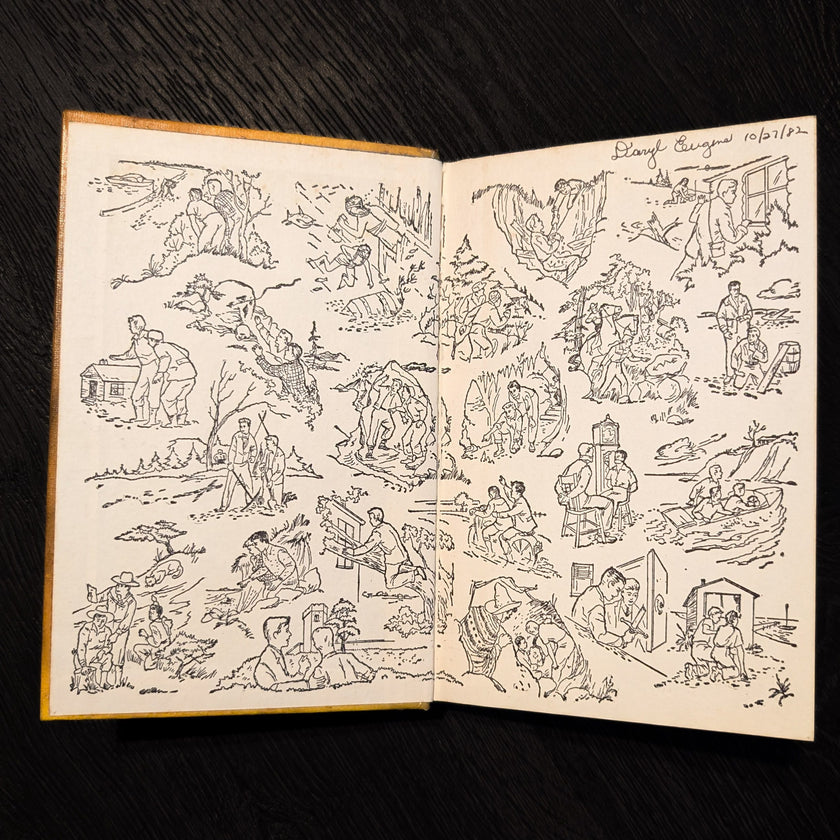 Daryl Eugene 10/27/82